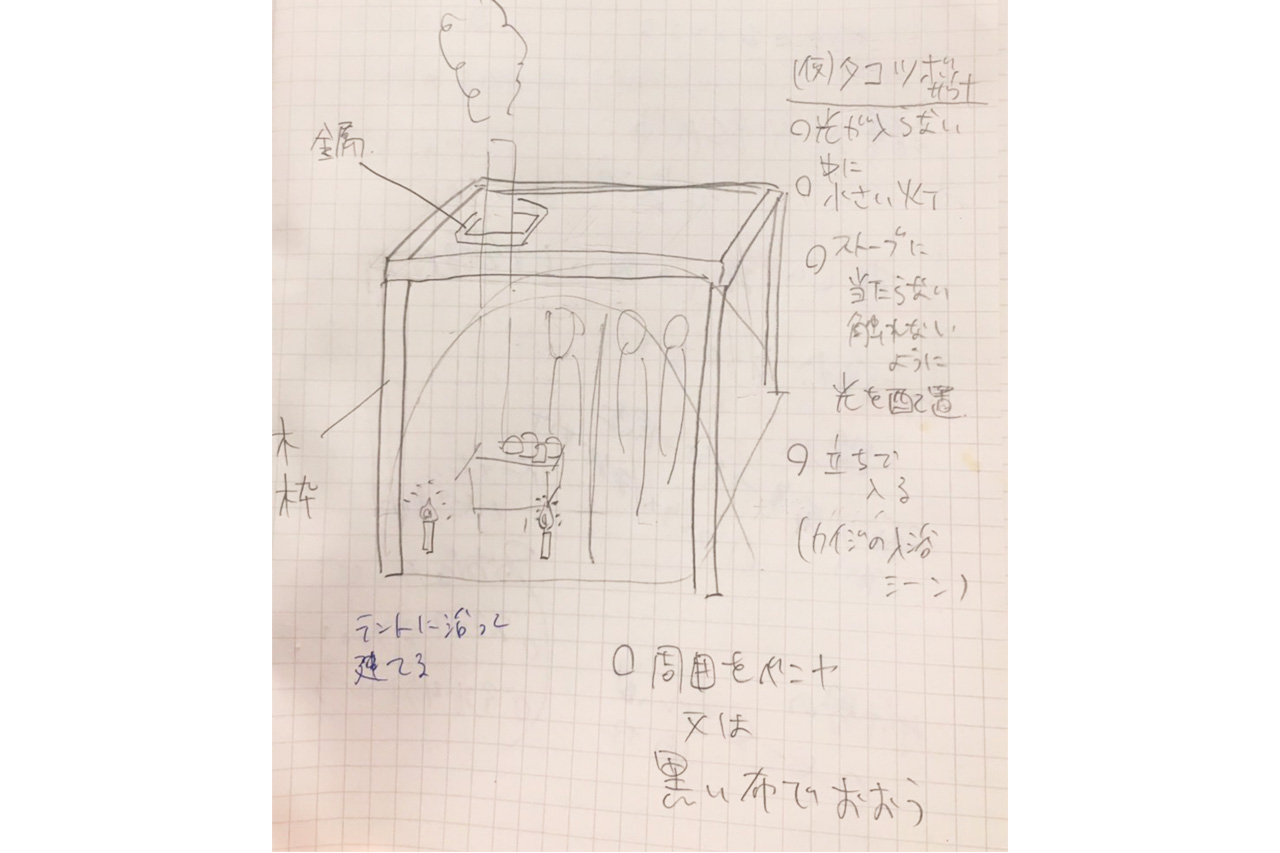 金属
木
枠
テントに沿って
建てる
(仮)タコツボ
○光が入らない
○中に
小さい火て
○ストーブに
当たらない
触れない
ように
光を配置
○立ちで
入る
(カイジの入浴
シーン)
○周囲をベニヤ
又は
黒い布でおおう